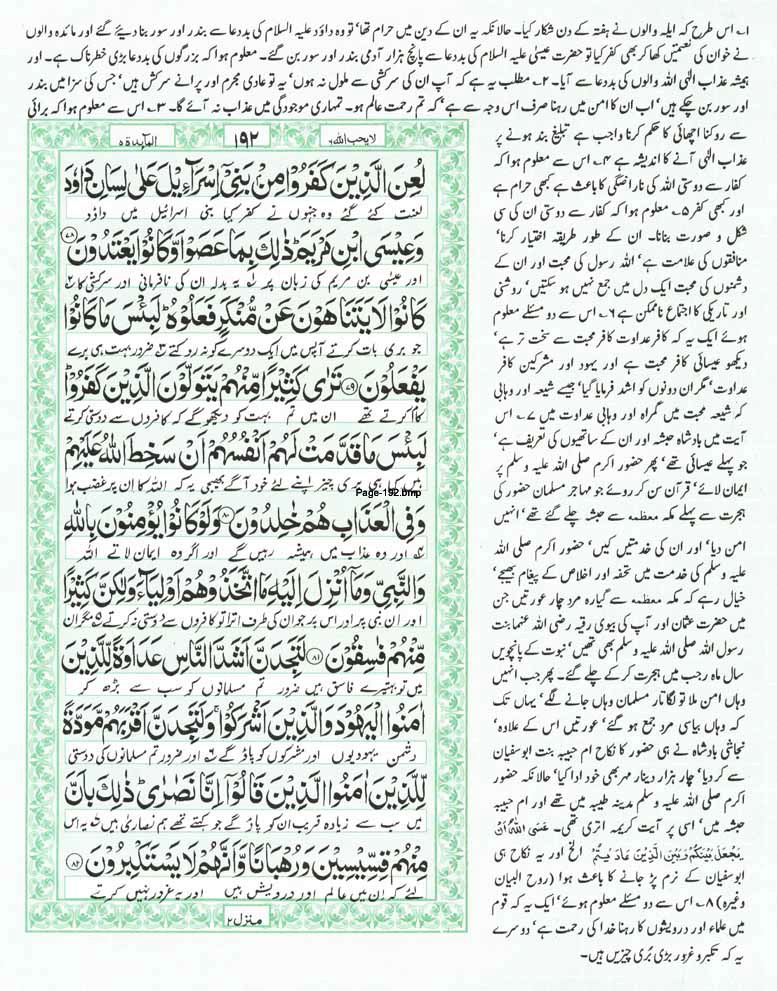 ۱؎ اس طرح کہ ایلہ والوں نے ہفتہ کے دن شکار کیا۔ حالانکہ یہ ان کے دین میں حرام تھا' تو وہ داؤد علیہ السلام کی بددعا سے بندر اور سور بنا دیئے گئے اور مائدہ والوں
نے خوان کی نعمتیں کھا کر بھی کفر کیا تو حضرت عیسیٰ علیہ السلام کی بددعا سے پانچ ہزار آدمی بندر اور سور بن گئے۔ معلوم ہوا کہ بزرگوں کی بددعا بڑی خطرناک ہے۔ اور
ہمیشہ عذاب الٰہی اللہ والوں کی بددعا سے آیا۔ ۲؎ مطلب یہ ہے کہ آپ ان کی سرکشی سے ملول نہ ہوں' یہ تو عادی مجرم اور پرانے سرکش ہیں' جس کی سزا میں بندر
اور سور بن چکے ہیں' اب ان کا امن میں رہنا صرف اس وجہ سے ہے' کہ تم رحمت عالم ہو۔ تمہاری موجودگی میں عذاب نہ آئے گا۔ ۳؎ اس سے معلوم ہوا کہ برائی
سے روکنا اچھائی کا حکم کرنا واجب ہے تبلیغ بند ہونے پر
عذاب الٰہی آنے کا اندیشہ ہے ۴؎ اس سے معلوم ہوا کہ
کفار سے دوستی اللہ کی ناراضگی کا باعث ہے کبھی حرام ہے
اور کبھی کفر ۵؎ معلوم ہوا کہ کفار سے دوستی ان کی سی
شکل و صورت بنانا۔ ان کے طور طریقہ اختیار کرنا'
منافقوں کی علامت ہے' اللہ رسول کی محبت اور ان کے
دشمنوں کی محبت ایک دل میں جمع نہیں ہو سکتیں' روشنی
اور تاریکی کا اجتماع ناممکن ہے ۶؎ اس سے دو مسئلے معلوم
ہوئے ایک یہ کہ کافر عداوت کافر محبت سے سخت تر ہے'
دیکھو عیسائی کافر محبت ہے اور یہود اور مشرکین کافر
عداوت' مگر ان دونوں کو اشد فرمایا گیا' جیسے شیعہ اور وہابی
کہ شیعہ محبت میں گمراہ اور وہابی عداوت میں ۷؎ اس
آیت میں بادشاہ حبشہ اور ان کے ساتھیوں کی تعریف ہے'
جو پہلے عیسائی تھے' پھر حضور اکرم صلی اللہ علیہ وسلم پر
ایمان لائے' قرآن سن کر روئے جو مہاجر مسلمان حضور کی
ہجرت سے پہلے مکہ معظمہ سے حبشہ چلے گئے تھے' انہیں
امن دیا' اور ان کی خدمتیں کیں' حضور اکرم صلی اللہ
علیہ وسلم کی خدمت میں تحفہ اور اخلاص کے پیغام بھیجے'
خیال رہے کہ مکہ معظمہ سے گیارہ مرد چار عورتیں جن
میں حضرت عثمان اور آپ کی بیوی رقیہ رضی اللہ عنہما بنت
رسول اللہ صلی اللہ علیہ وسلم بھی تھیں' نبوت کے پانچویں
سال ماہ رجب میں ہجرت کر کے چلے گئے۔ پھر جب انہیں
وہاں امن ملا تو لگاتار مسلمان وہاں جانے لگے' یہاں تک
کہ وہاں بیاسی مرد جمع ہو گئے' عورتیں اس کے علاوہ'
نجاشی بادشاہ نے ہی حضور کا نکاح ام حبیبہ بنت ابوسفیان
سے کر دیا' چار ہزار دینار مہر بھی خود ادا کیا' حالانکہ حضور
اکرم صلی اللہ علیہ وسلم مدینہ طیبہ میں تھے اور ام حبیبہ
حبشہ میں' اسی پر آیت کریمہ اتری تھی۔ عَسَى اللّٰهُ اَنْ
يَّجْعَلَ بَيْنَكُمْ وَبَيْنَ الَّذِيْنَ عَادَيْتُمْ الخ اور یہ نکاح ہی
ابوسفیان کے نرم پڑ جانے کا باعث ہوا (روح البیان
وغیرہ) ۸؎ اس سے دو مسئلے معلوم ہوئے' ایک یہ کہ قوم
میں علماء اور درویشوں کا رہنا خدا کی رحمت ہے' دوسرے
یہ کہ تکبر و غرور بڑی بُری چیزیں ہیں۔
لایحب اللہ ۶ ۱۹۲ المآیدۃ ۵
لُعِنَ الَّذِيْنَ كَفَرُوْا مِنْۢ بَنِيْۤ اِسْرَآءِيْلَ عَلٰى لِسَانِ دَاوٗدَ
لعنت کئے گئے وہ جنہوں نے کفر کیا بنی اسرائیل میں داؤد
وَعِيْسَى ابْنِ مَرْيَمَ ؕ ذٰلِكَ بِمَا عَصَوْا وَّكَانُوْا يَعْتَدُوْنَ ﴿۷۸﴾
اور عیسٰی بن مریم کی زبان پر یہ بدلہ ان کی نافرمانی اور سرکشی کا
كَانُوْا لَا يَتَنَاهَوْنَ عَنْ مُّنْكَرٍ فَعَلُوْهُ ؕ لَبِئْسَ مَا كَانُوْا
جو بری بات کرتے آپس میں ایک دوسرے کو نہ روکتے ضرور بہت ہی برے
يَفْعَلُوْنَ ﴿۷۹﴾ تَرٰى كَثِيْرًا مِّنْهُمْ يَتَوَلَّوْنَ الَّذِيْنَ كَفَرُوْا ؕ
کام کرتے تھے ان میں تم بہت کو دیکھو گے کہ کافروں سے دوستی کرتے
لَبِئْسَ مَا قَدَّمَتْ لَهُمْ اَنْفُسُهُمْ اَنْ سَخِطَ اللّٰهُ عَلَيْهِمْ
ہیں کیا ہی بری چیز اپنے لئے خود آگے بھیجی یہ کہ اللہ کا ان پر غضب ہوا
Page-192.bmp
وَفِي الْعَذَابِ هُمْ خٰلِدُوْنَ ﴿۸۰﴾ وَلَوْ كَانُوْا يُؤْمِنُوْنَ بِاللّٰهِ
اور وہ عذاب میں ہمیشہ رہیں گے اور اگر وہ ایمان لاتے اللہ
وَالنَّبِيِّ وَمَاۤ اُنْزِلَ اِلَيْهِ مَا اتَّخَذُوْهُمْ اَوْلِيَآءَ وَلٰكِنَّ كَثِيْرًا
اور ان نبی پر اور اس پر جو ان کی طرف اترا تو کافروں سے دوستی نہ کرتے مگر ان
مِّنْهُمْ فٰسِقُوْنَ ﴿۸۱﴾ لَتَجِدَنَّ اَشَدَّ النَّاسِ عَدَاوَةً لِّلَّذِيْنَ
میں تو بہتیرے فاسق ہیں ضرور تم مسلمانوں کو سب سے بڑھ کر
اٰمَنُوا الْيَهُوْدَ وَالَّذِيْنَ اَشْرَكُوْا ۚ وَلَتَجِدَنَّ اَقْرَبَهُمْ مَّوَدَّةً
دشمن یہودیوں اور مشرکوں کو پاؤ گے اور ضرور تم مسلمانوں کی دوستی
لِّلَّذِيْنَ اٰمَنُوا الَّذِيْنَ قَالُوْۤا اِنَّا نَصٰرٰى ؕ ذٰلِكَ بِاَنَّ
میں سب سے زیادہ قریب ان کو پاؤ گے جو کہتے تھے ہم نصاریٰ ہیں یہ اس
مِنْهُمْ قِسِّيْسِيْنَ وَرُهْبَانًا وَّاَنَّهُمْ لَا يَسْتَكْبِرُوْنَ ﴿۸۲﴾
لئے کہ ان میں عالم اور درویش ہیں اور یہ غرور نہیں کرتے
منزل ۲